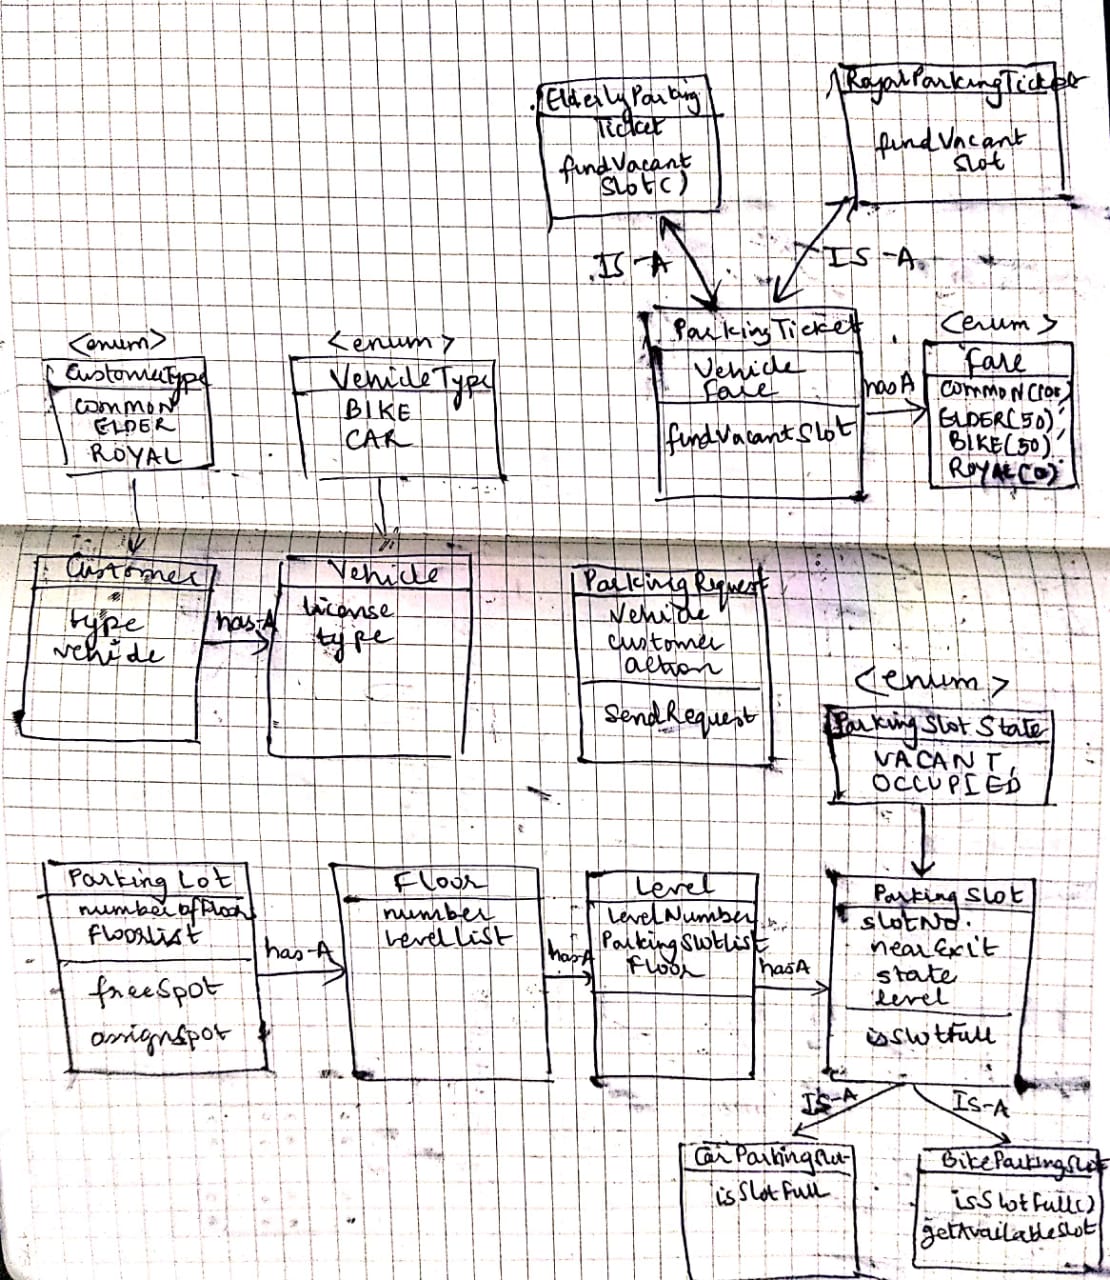 ElderlyParking
Ticket
findVacant
Slot()
RoyalParkingTicket
findVacant
Slot
IS-A
IS-A
<enum>
CustomerType
COMMON
ELDER
ROYAL
<enum>
VehicleType
BIKE
CAR
ParkingTicket
Vehicle
Fare
findVacantSlot
hasA
<enum>
Fare
COMMON(100)
ELDER(50),
BIKE(50),
ROYAL(0)
Customer
type
vehicle
has-A
Vehicle
license
type
ParkingRequest
Vehicle
customer
action
SendRequest
<enum>
ParkingSlotState
VACANT,
OCCUPIED
Parking Lot
numberofFloor
FloorList
freeSpot
assignSpot
has-A
Floor
number
LevelList
hasA
Level
LevelNumber
ParkingSlotList
Floor
hasA
Parking Slot
slotNo.
nearExit
state
level
isSlotFull
IS-A
IS-A
CarParkingSlot
isSlotFull
BikeParkingSlot
isSlotFull()
getAvailableSlot